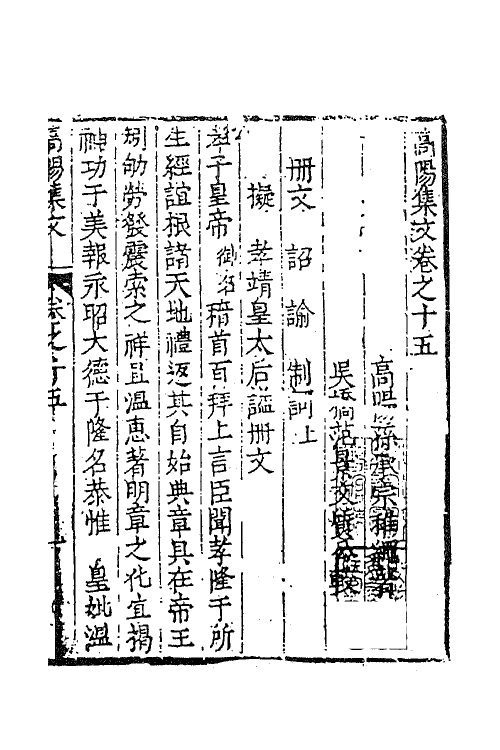 高陽集文卷之十五
高陽孫承宗稚繩著
吳橋范景文
冊文　詔　諭　制詞上
擬　孝靖皇太后謚冊文
孝子皇帝御名稽首百拜上言臣聞孝隆于所
生經誼根諸天地禮返其自始典章具在帝王
劬勞發震索之祥且溫惠著明章之化宜揭
功于美報永昭大德于隆名恭惟　皇妣溫
高陽集文　卷之十五